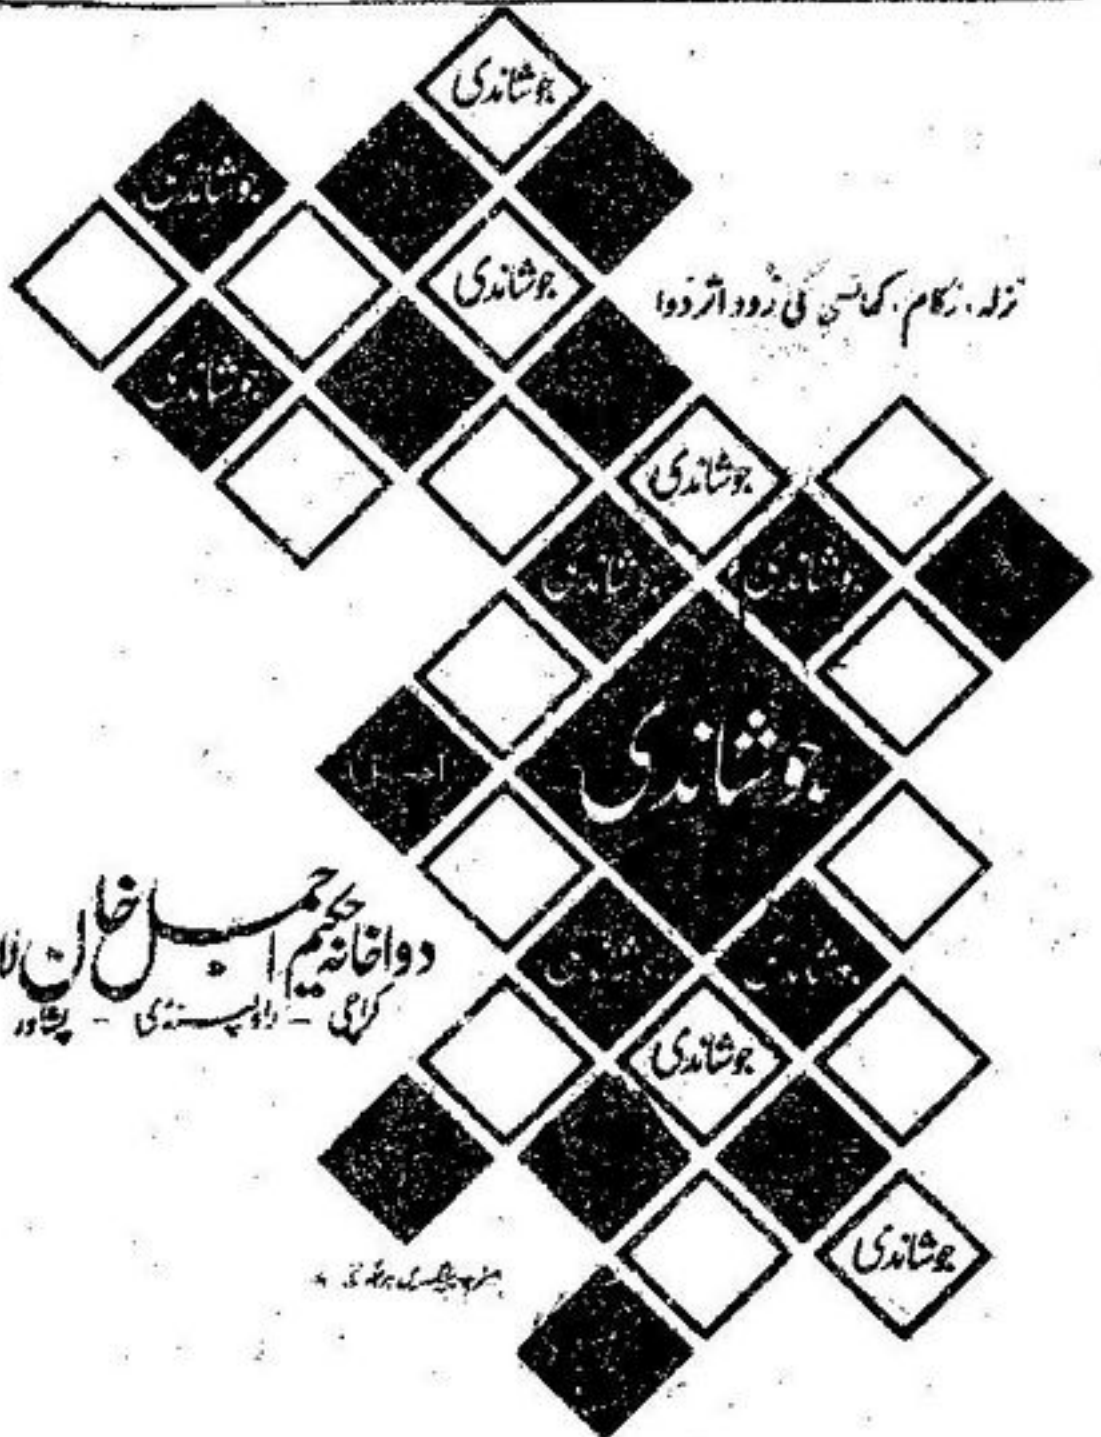 جوشاندی
جوشاندی
جوشاندی
نزلہ، زکام، کھانسی کی زود اثر دوا
جوشاندی
جوشاندی
جوشاندی
جوشاندی
جوشاندی
دواخانہ حکیم اجمل خان
کراچی - راولپنڈی - پشاور
جوشاندی
جوشاندی
جوشاندی
جوشاندی